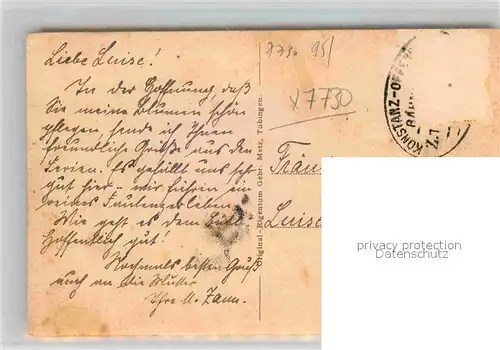 Liebe Luise!
In der Hoffnung, daß
Sie meine Blumen schön
pflegen, sende ich Ihnen
freundliche Grüße aus den
Ferien. Es gefällt uns sehr
gut hier – wir führen ein
reines Faulenzerleben.
Wie geht es dem
Hoffentlich gut!
Nochmals besten Gruß
auch an die Mutter
Ihre M. Zann.
Original-Eigentum Gebr. Metz, Tübingen
7730 95/
x7730
KONSTANZ-OFFE
Z.1
Fräu
Luise
privacy protection
Datenschutz